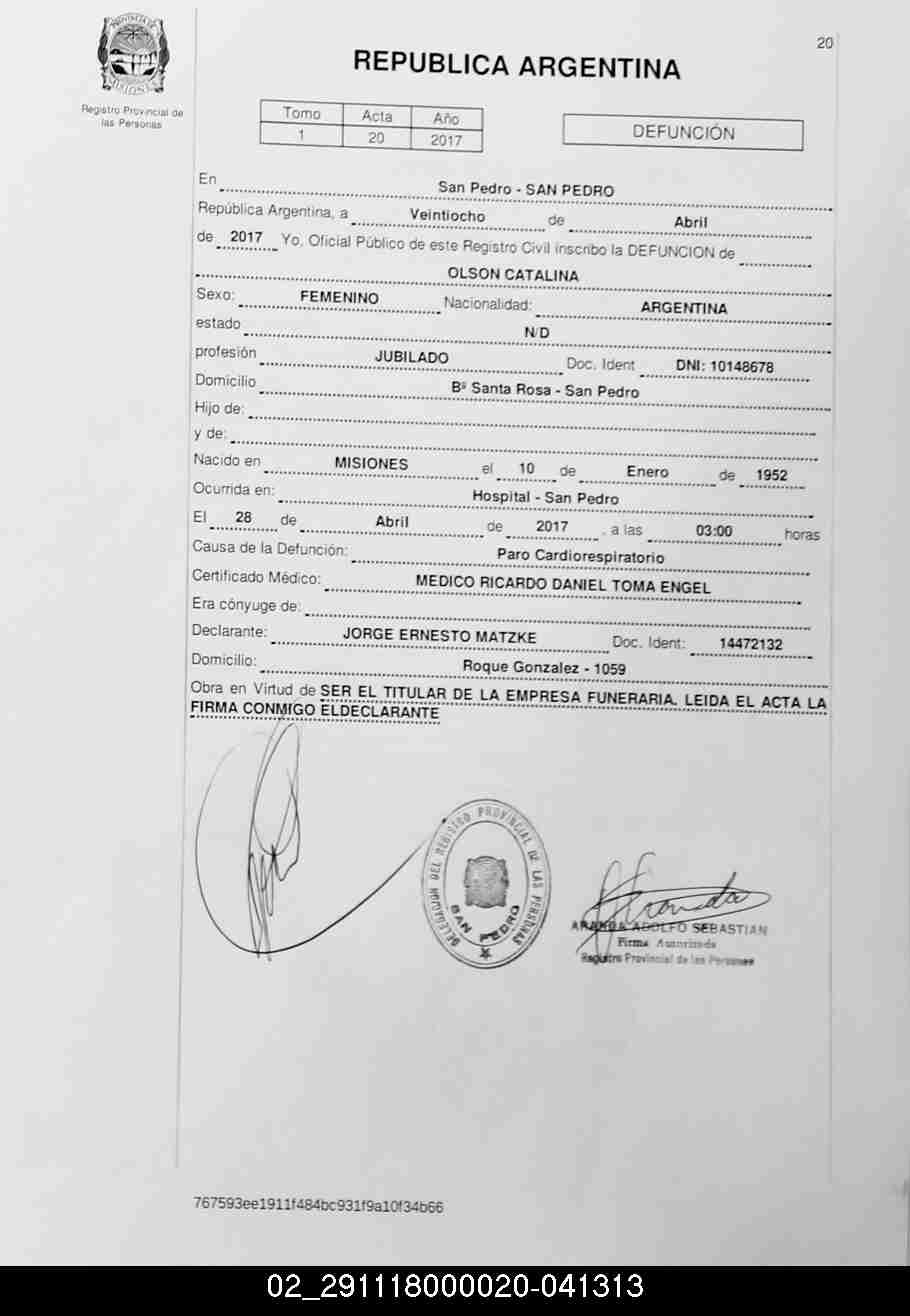 20
PROVINCIA DE
MISIONES
Registro Provincial de
las Personas
REPUBLICA ARGENTINA
Tomo Acta Año
1 20 2017
DEFUNCIÓN
En San Pedro - SAN PEDRO
República Argentina, a Veintiocho de Abril
de 2017 Yo, Oficial Público de este Registro Civil inscribo la DEFUNCION de
OLSON CATALINA
Sexo: FEMENINO Nacionalidad: ARGENTINA
estado N/D
profesión JUBILADO Doc. Ident DNI: 10148678
Domicilio Bº Santa Rosa - San Pedro
Hijo de:
y de:
Nacido en MISIONES el 10 de Enero de 1952
Ocurrida en: Hospital - San Pedro
El 28 de Abril de 2017 , a las 03:00 horas
Causa de la Defunción: Paro Cardiorespiratorio
Certificado Médico: MEDICO RICARDO DANIEL TOMA ENGEL
Era cónyuge de:
Declarante: JORGE ERNESTO MATZKE Doc. Ident: 14472132
Domicilio: Roque Gonzalez - 1059
Obra en Virtud de SER EL TITULAR DE LA EMPRESA FUNERARIA. LEIDA EL ACTA LA
FIRMA CONMIGO ELDECLARANTE
DELEGACION DEL REGISTRO PROVINCIAL DE LAS PERSONAS
SAN PEDRO
ARANDA ADOLFO SEBASTIAN
Firma Autorizada
Registro Provincial de las Personas
767593ee1911f484bc931f9a10f34b66
02_291118000020-041313